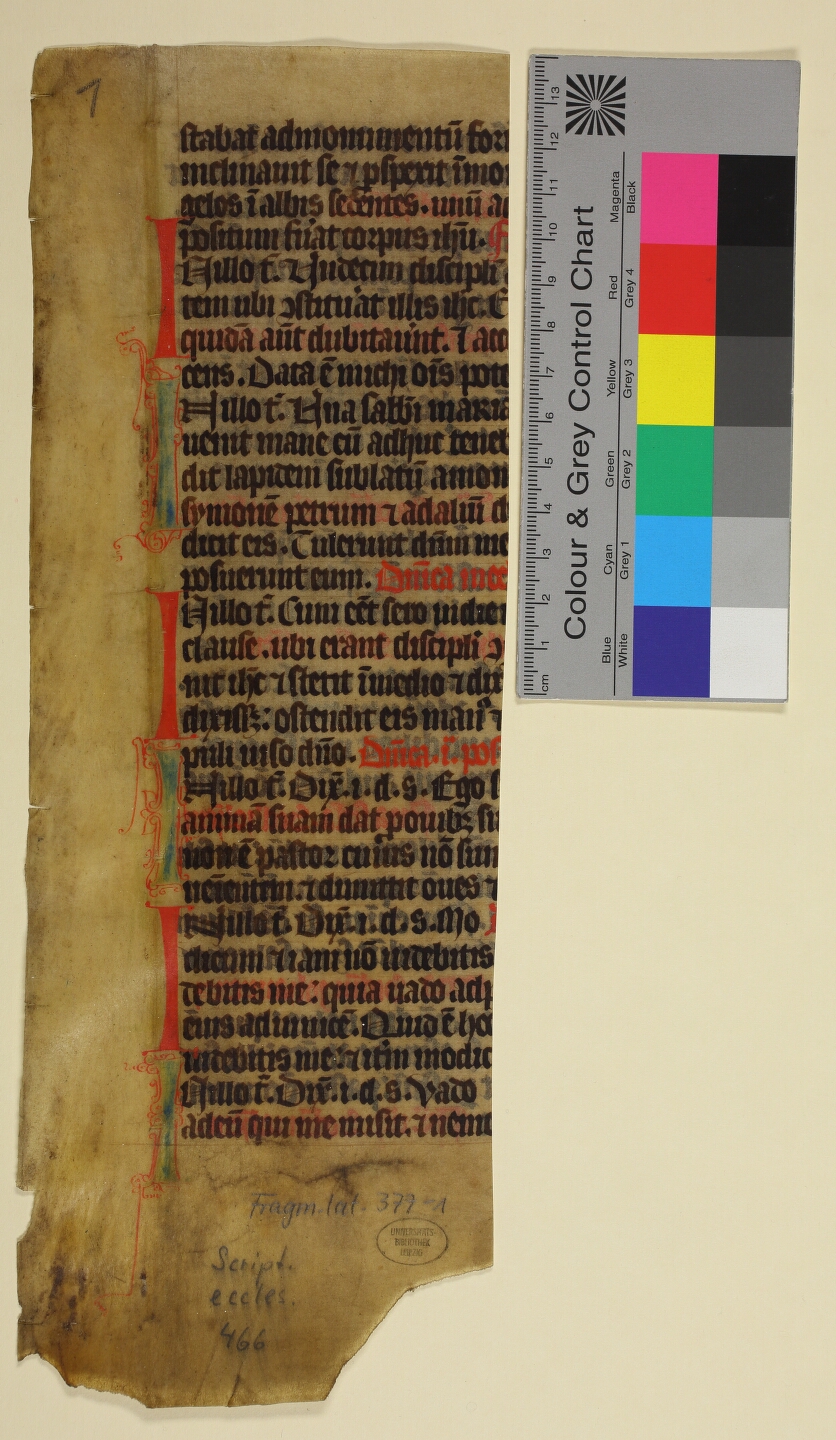 1
stabat ad monumentū for
inclinauit se ⁊ ꝓspexit ī mo
gelos ī albis sedentes. unū ad
positum fūat corpus ihū.
In illo t̄. Undecim discipli
tem ubi ↄstituāt illis ihc. E
quidā aūt dubitauūt. ⁊ acc
cens. Data ē michi oīs pote
In illo t̄. Una sabb̄i maria
uenit mane cū adhuc teneb
dit lapidem sublatū a mon
symonē petrum ⁊ ad aliū d
dicit eis. Tulerunt dn̄m me
posuerunt eum. Dn̄ica
In illo t̄. Cum eēt sero in die
clause. ubi erant discipli ↄ
nit ihc ⁊ stetit ī medio ⁊ dix
dixissꝫ: ostendit eis man
puli uiso dn̄o. Dn̄ica. i. pos
In illo t̄. Dix̄. i. d. s. Ego s
animā suam dat ꝓ ouibꝫ su
non ē pastor cuius nō sun
uenientem. ⁊ dimittit oues ⁊
In illo t̄. Dix̄. i. d. s. Mo
dicum ⁊ iam nō uidebitis
debitis me: quia uado ad p
eius ad inuicē. Quid ē hoc
uidebitis me: ⁊ itm̄ modic
In illo t̄. Dix̄. i. d. s. Vado
ad eū qui me misit. ⁊ nemo
Fragm. lat. 379-1
UNIVERSITÄTS-
BIBLIOTHEK
LEIPZIG
Script.
eccles.
466
Colour & Grey Control Chart
cm 1 2 3 4 5 6 7 8 9 10 11 12 13
Blue Cyan Green Yellow Red Magenta
White Grey 1 Grey 2 Grey 3 Grey 4 Black